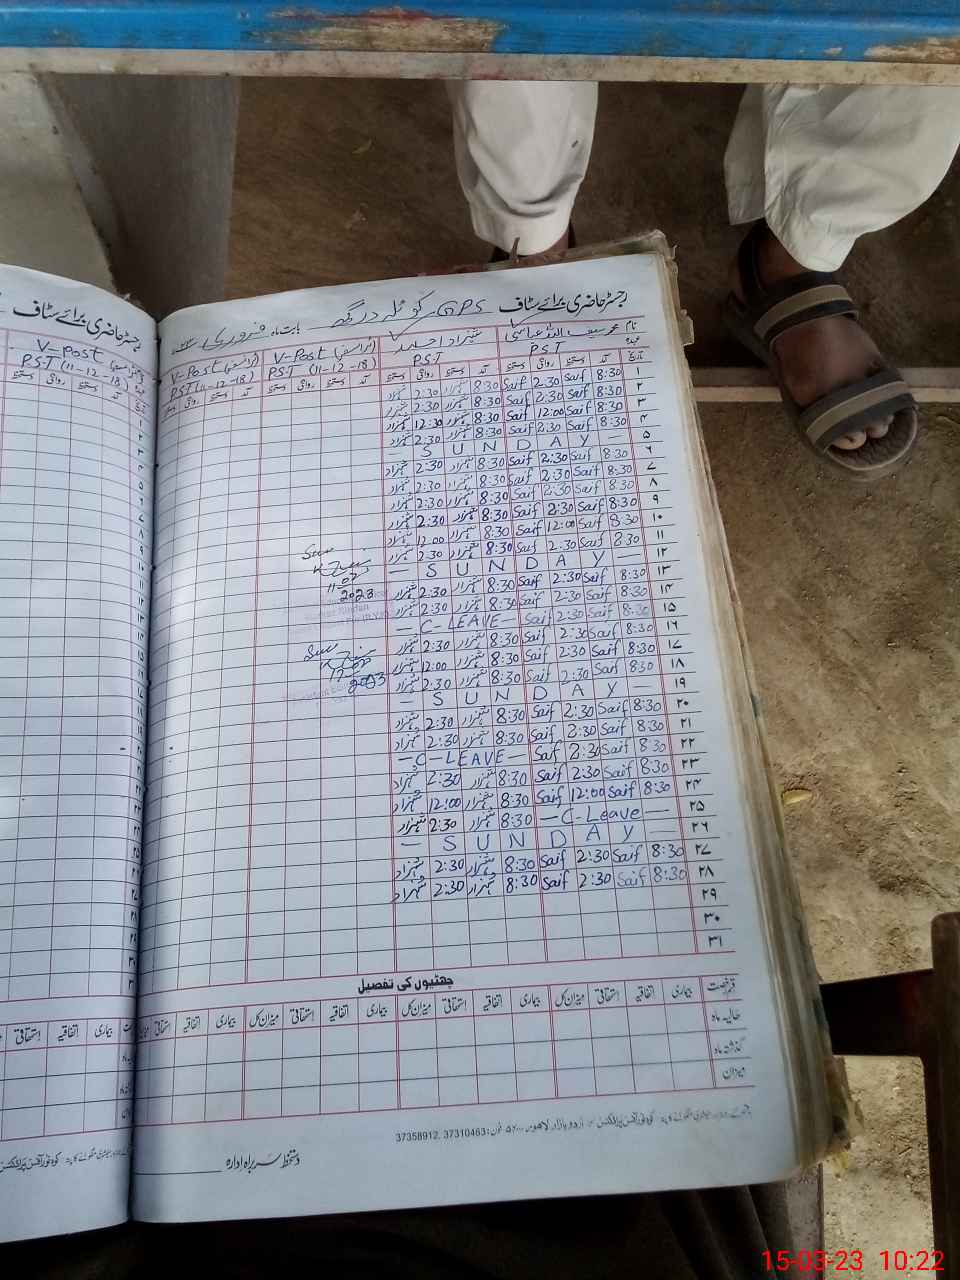 رجسٹر حاضری برائے سٹاف GPS کوٹلہ درگھ بابت ماہ فروری
نام محمد سیف اللہ عباسی شہزاد احمد V-Post V-Post
عہدہ P.S.T P.S.T PST (11-12-18) PST (11-12-18)
تاریخ آمد دستخط روانگی دستخط آمد دستخط روانگی دستخط آمد دستخط روانگی دستخط آمد دستخط روانگی دستخط
۱ 8:30 Saif 2:30 Saif 8:30 شہزاد 2:30 شہزاد
۲ 8:30 Saif 2:30 Saif 8:30 شہزاد 2:30 شہزاد
۳ 8:30 Saif 12:00 Saif 8:30 شہزاد 12:30 شہزاد
۴ 8:30 Saif 2:30 Saif 8:30 شہزاد 2:30 شہزاد
۵ — S U N D A Y —
۶ 8:30 Saif 2:30 Saif 8:30 شہزاد 2:30 شہزاد
۷ 8:30 Saif 2:30 Saif 8:30 شہزاد 2:30 شہزاد
۸ 8:30 Saif 2:30 Saif 8:30 شہزاد 2:30 شہزاد
۹ 8:30 Saif 2:30 Saif 8:30 شہزاد 2:30 شہزاد
۱۰ 8:30 Saif 12:00 Saif 8:30 شہزاد 12:00 شہزاد
۱۱ 8:30 Saif 2:30 Saif 8:30 شہزاد 2:30 شہزاد
۱۲ — S U N D A Y —
۱۳ 8:30 Saif 2:30 Saif 8:30 شہزاد 2:30 شہزاد
۱۴ 8:30 Saif 2:30 Saif 8:30 شہزاد 2:30 شہزاد
۱۵ 8:30 Saif 2:30 Saif — C-LEAVE —
۱۶ 8:30 Saif 2:30 Saif 8:30 شہزاد 2:30 شہزاد
۱۷ 8:30 Saif 2:30 Saif 8:30 شہزاد 12:00 شہزاد
۱۸ 8:30 Saif 2:30 Saif 8:30 شہزاد 2:30 شہزاد
۱۹ — S U N D A Y —
۲۰ 8:30 Saif 2:30 Saif 8:30 شہزاد 2:30 شہزاد
۲۱ 8:30 Saif 2:30 Saif 8:30 شہزاد 2:30 شہزاد
۲۲ 8:30 Saif 2:30 Saif — C-LEAVE —
۲۳ 8:30 Saif 2:30 Saif 8:30 شہزاد 2:30 شہزاد
۲۴ 8:30 Saif 12:00 Saif 8:30 شہزاد 12:00 شہزاد
۲۵ — C-Leave — 8:30 شہزاد 2:30 شہزاد
۲۶ — S U N D A Y —
۲۷ 8:30 Saif 2:30 Saif 8:30 شہزاد 2:30 شہزاد
۲۸ 8:30 Saif 2:30 Saif 8:30 شہزاد 2:30 شہزاد
۲۹
۳۰
۳۱
2023
چھٹیوں کی تفصیل
قسم رخصت بیماری اتفاقیہ استحقاقی میزان کل بیماری اتفاقیہ استحقاقی میزان کل بیماری اتفاقیہ استحقاقی میزان کل بیماری اتفاقیہ استحقاقی
حالیہ ماہ
گذشتہ ماہ
میزان
اردو بازار لاہور فون: 37310463, 37358912
دستخط سربراہ ادارہ
رجسٹر حاضری برائے سٹاف
V-Post
PST (11-12-18)
15-03-23 10:22